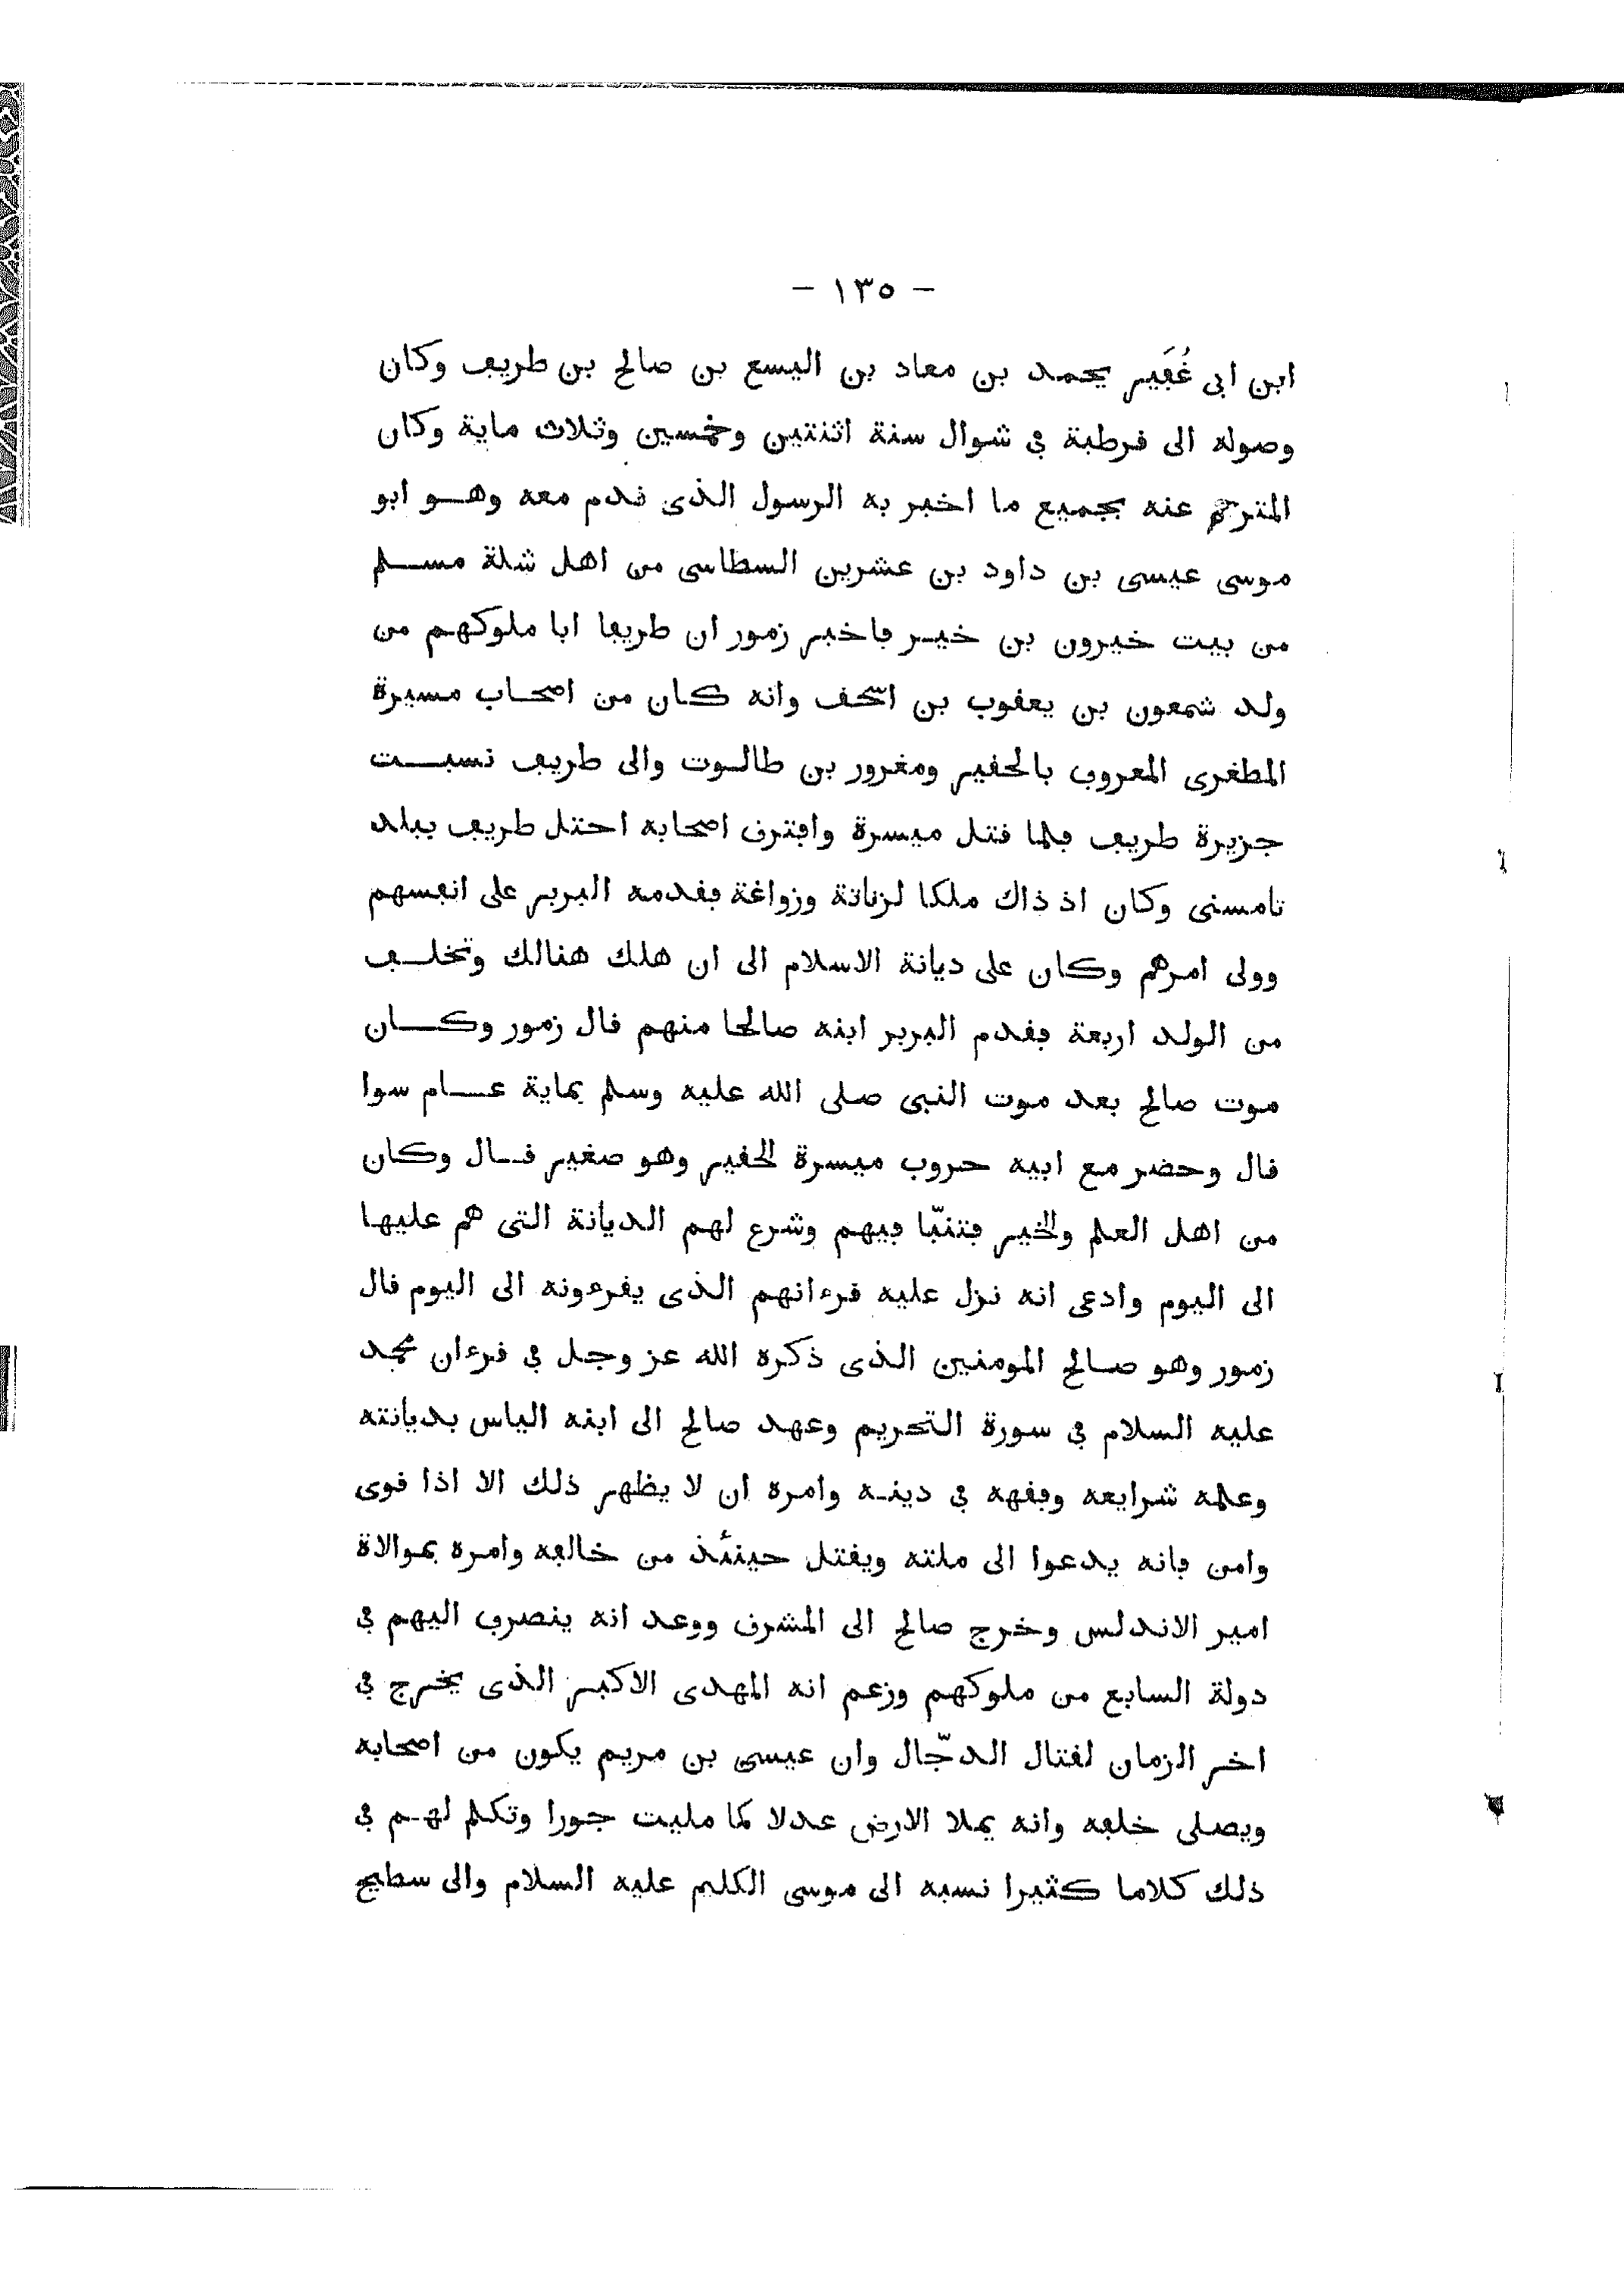 - ١٣٥ -
ابن ابى غُڢَير يحمد بن معاد بن اليسع بن صالح بن طريڢ وكان
وصوله الى ڧرطبة ڢى شوال سنة اثنتين وخمسين وثلاث ماية وكان
المترجم عنه بجميع ما اخبر به الرسول الذى ڧدم معه وهو ابو
موسى عيسى بن داود بن عشرين السطاسى من اهل شلة مسلم
من بيت خيرون بن خير ڢاخبر زمور ان طريڢا ابا ملوكهم من
ولد شمعون بن يعڧوب بن اسحڧ وانه كان من اصحاب مسيرة
المطغرى المعروڢ بالحڧير ومغرور بن طالوت والى طريڢ نسبت
جزيرة طريڢ ڢلما ڧتل ميسرة واڢترڧ اصحابه احتل طريڢ ببلد
تامسنى وكان اذ ذاك ملكا لزناتة وزواغة ڢڧدمه البربر على انڢسهم
وولى امرهم وكان على ديانة الاسلام الى ان هلك هنالك وتخلڢ
من الولد اربعة ڢڧدم البربر ابنه صالحا منهم ڧال زمور وكان
موت صالح بعد موت النبى صلى الله عليه وسلم بماية عام سوا
ڧال وحضر مع ابيه حروب ميسرة الحڧير وهو صغير ڧال وكان
من اهل العلم والخير ڢتنبّا ڢيهم وشرع لهم الديانة التى هم عليها
الى اليوم وادعى انه نزل عليه ڧرءانهم الذى يڧرءونه الى اليوم ڧال
زمور وهو صالح المومنين الذى ذكره الله عز وجل ڢى ڧرءان محمد
عليه السلام ڢى سورة التحريم وعهد صالح الى ابنه الياس بديانته
وعلمه شرايعه وڢڧهه ڢى دينه وامره ان لا يظهر ذلك الا اذا ڧوى
وامن ڢانه يدعوا الى ملته ويڧتل حينئذ من خالڢه وامره بموالاة
امير الاندلس وخرج صالح الى المشرڧ ووعد انه ينصرڢ اليهم ڢى
دولة السابع من ملوكهم وزعم انه المهدى الاكبر الذى يخرج ڢى
اخر الزمان لڧتال الدجّال وان عيسى بن مريم يكون من اصحابه
ويصلى خلڢه وانه يملا الارض عدلا كما مليت جورا وتكلم لهم ڢى
ذلك كلاما كثيرا نسبه الى موسى الكليم عليه السلام والى سطيح